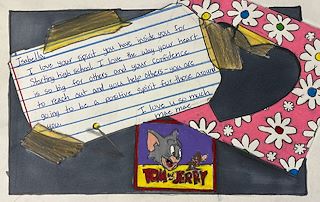 Isabella,
I love your spirit you have inside you for
starting high school. I love the way your heart
is so big for others and your confidence
to reach out and want to help others - you are
going to be a positive spirit for those around
you.
I love u so much
mae mae
TOM and JERRY